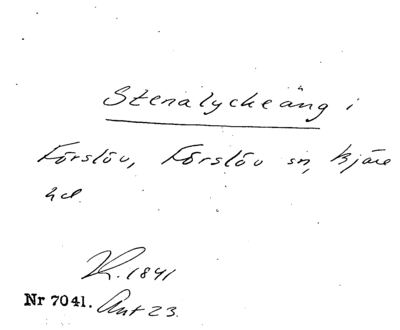 Stenalyckeäng i
Förslöv, Förslöv sn, Bjäre
hd.
R. 1841
Nr 7041. Ant 23.